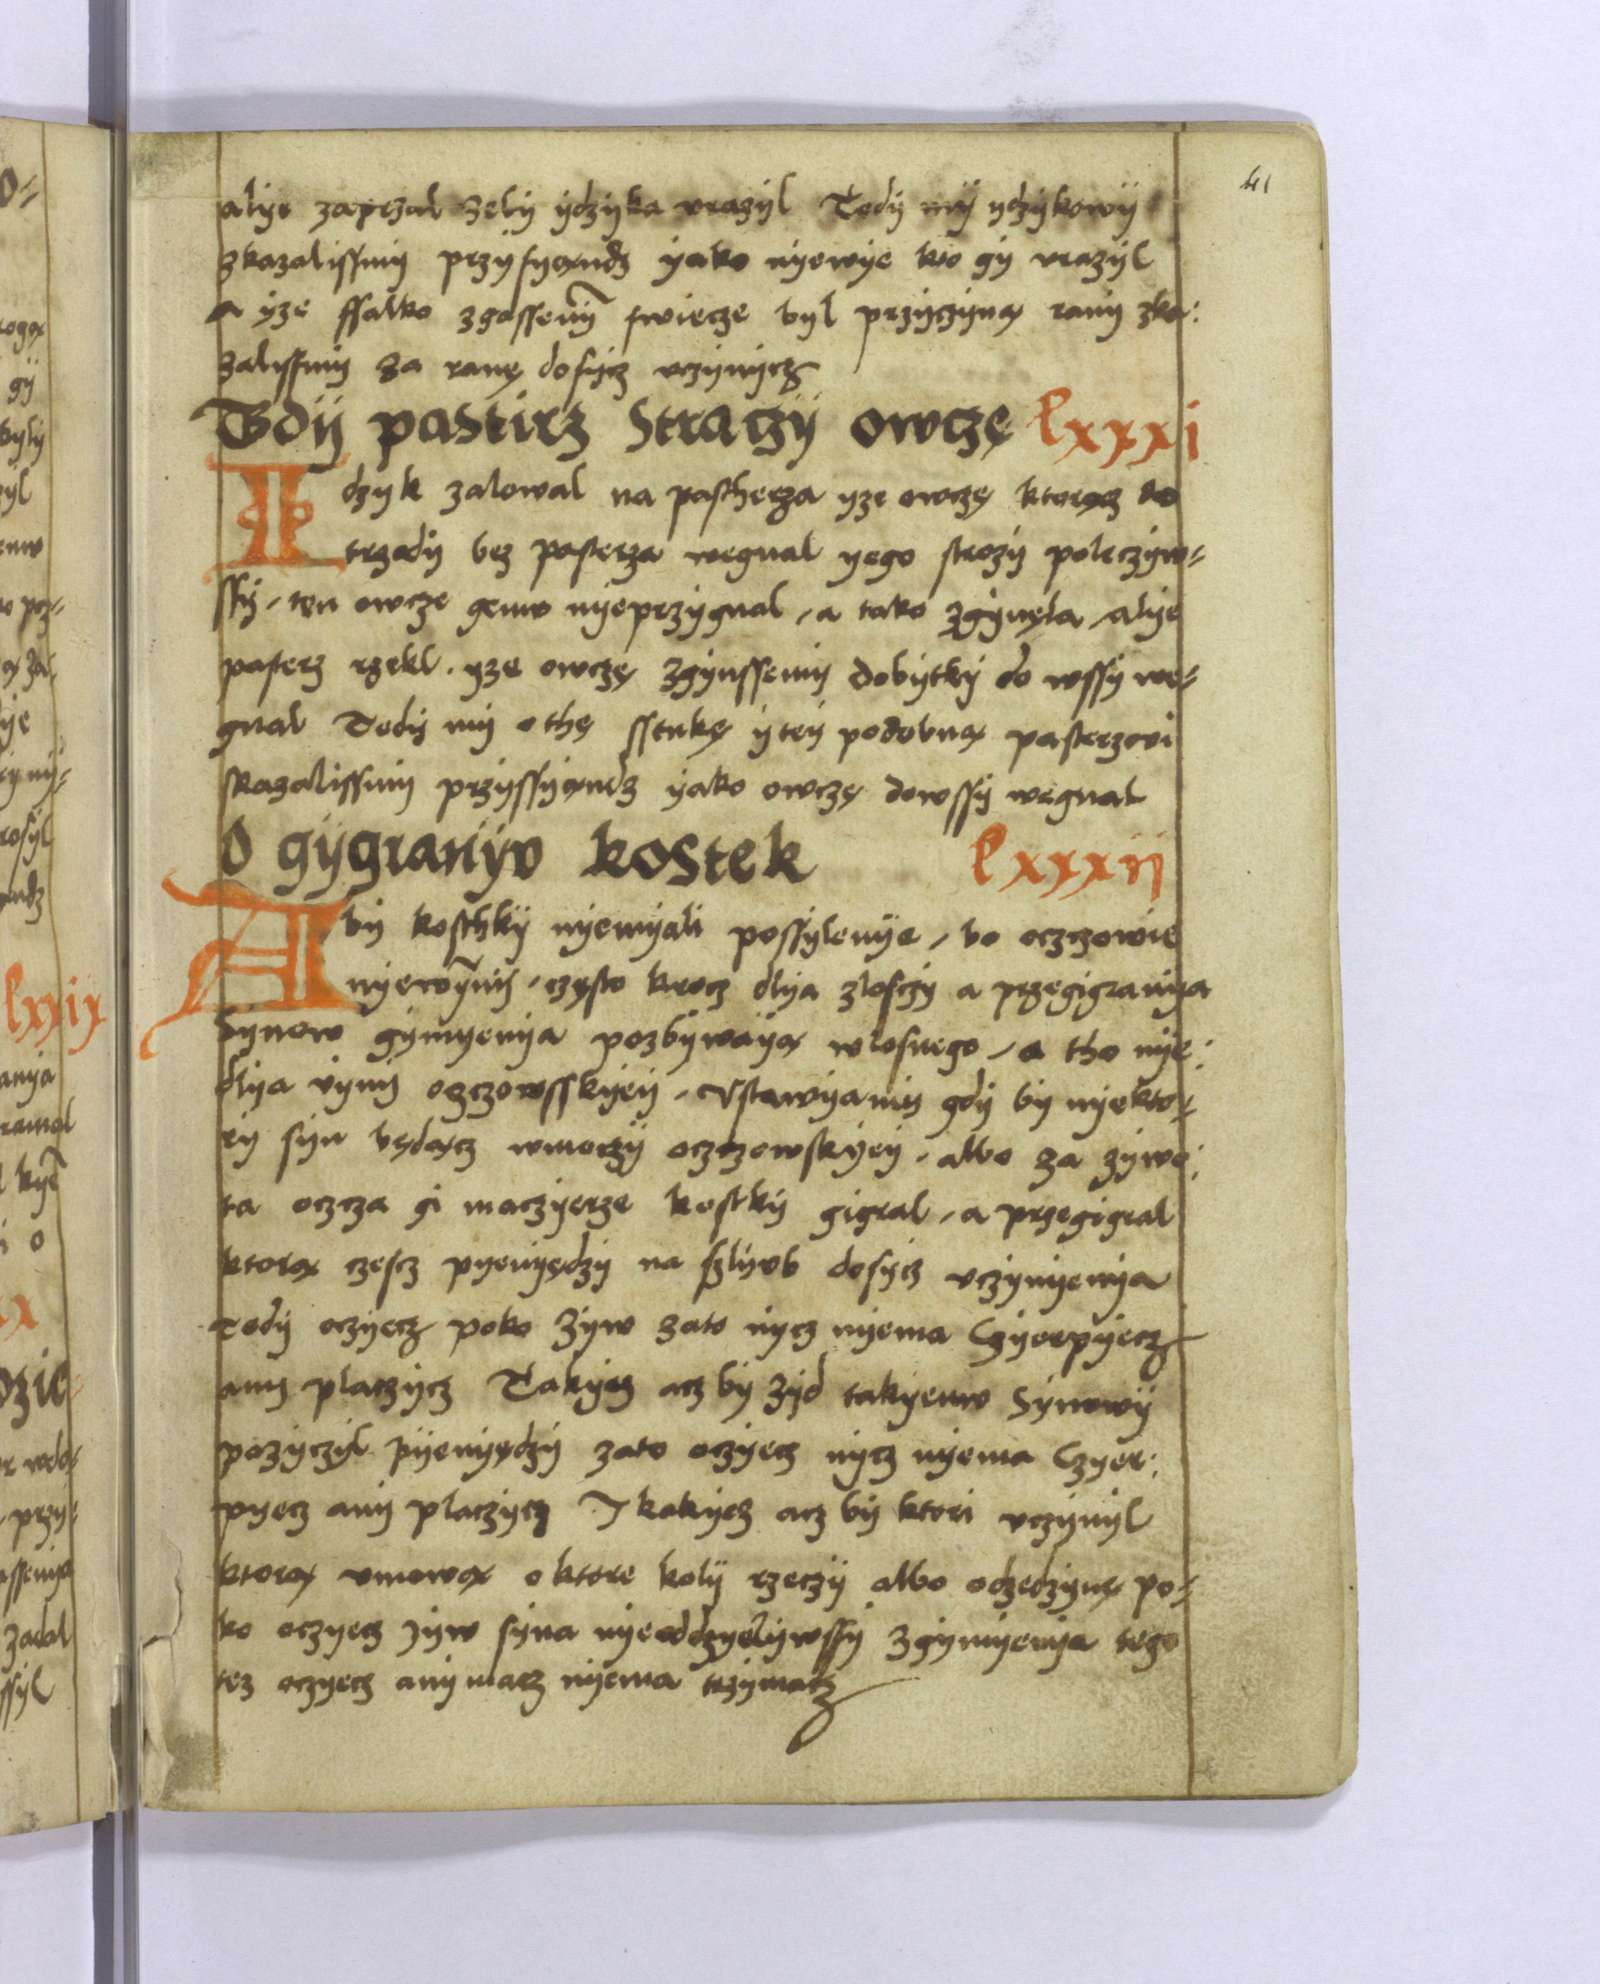 41
alye zaprzal zely ydzyka vrazyl Tedy my ydzykowy
skazalissmy przysyandz yako nyewye kto gy vrazyl
a yze ssalko zgassenym swiecze byl przyczyna rany ska:
zalissmy za ranę dosycz vczynycz
Gdy pastirz straczy owczę lxxxi
Idzyk zalowal na pastherza yze owczę ktorez do
trzody bez pasterza wegnal yego strozy poleczyw-
ssy, ten owcze gemv nyeprzygnal, a tako zgynęla, alye
pasterz rzekl. yze owczę zgynssemy dobytky do wssy we-
gnal Tedy my o thę sstukę y tey podobna pasterzovi
skazalissmy przyssyandz yako owczę dowssy wegnal
O gygranyv kostek lxxxii
Aby kosthky nyemyali possylenye, bo oczczowie
nyewynny, często krocz dlya zlosczy a przegigranya
Synow gymyenya pozbywaya wlosnego, a tho nye:
dlya vyny oczczowsskyey, Vstawyamy gdy by nyekto-
ry syn będacz wmoczy oczczowskyey, albo za zywo:
ta oczcza gi maczyerze kostky gigral, a przegigral
ktora czescz pyenyędzy na szlyvb dosycz vczynyenya
Tedy oczyecz poko zyw zato nycz nyema czyerpyecz
any placzycz Takyez acz by zyd takyemv Synowy
pozyczyl pyenyędzy zato oczyecz nycz nyema czyer:
pyecz any placzycz I kakyez acz by ktori vczynyl
ktora vmowa o ktore koly rzeczy albo odzedzynę po-
ko oczyecz zyw syna nyeoddzyelywssy zgymyenya tego
tez oczyecz any macz nyema trzymacz